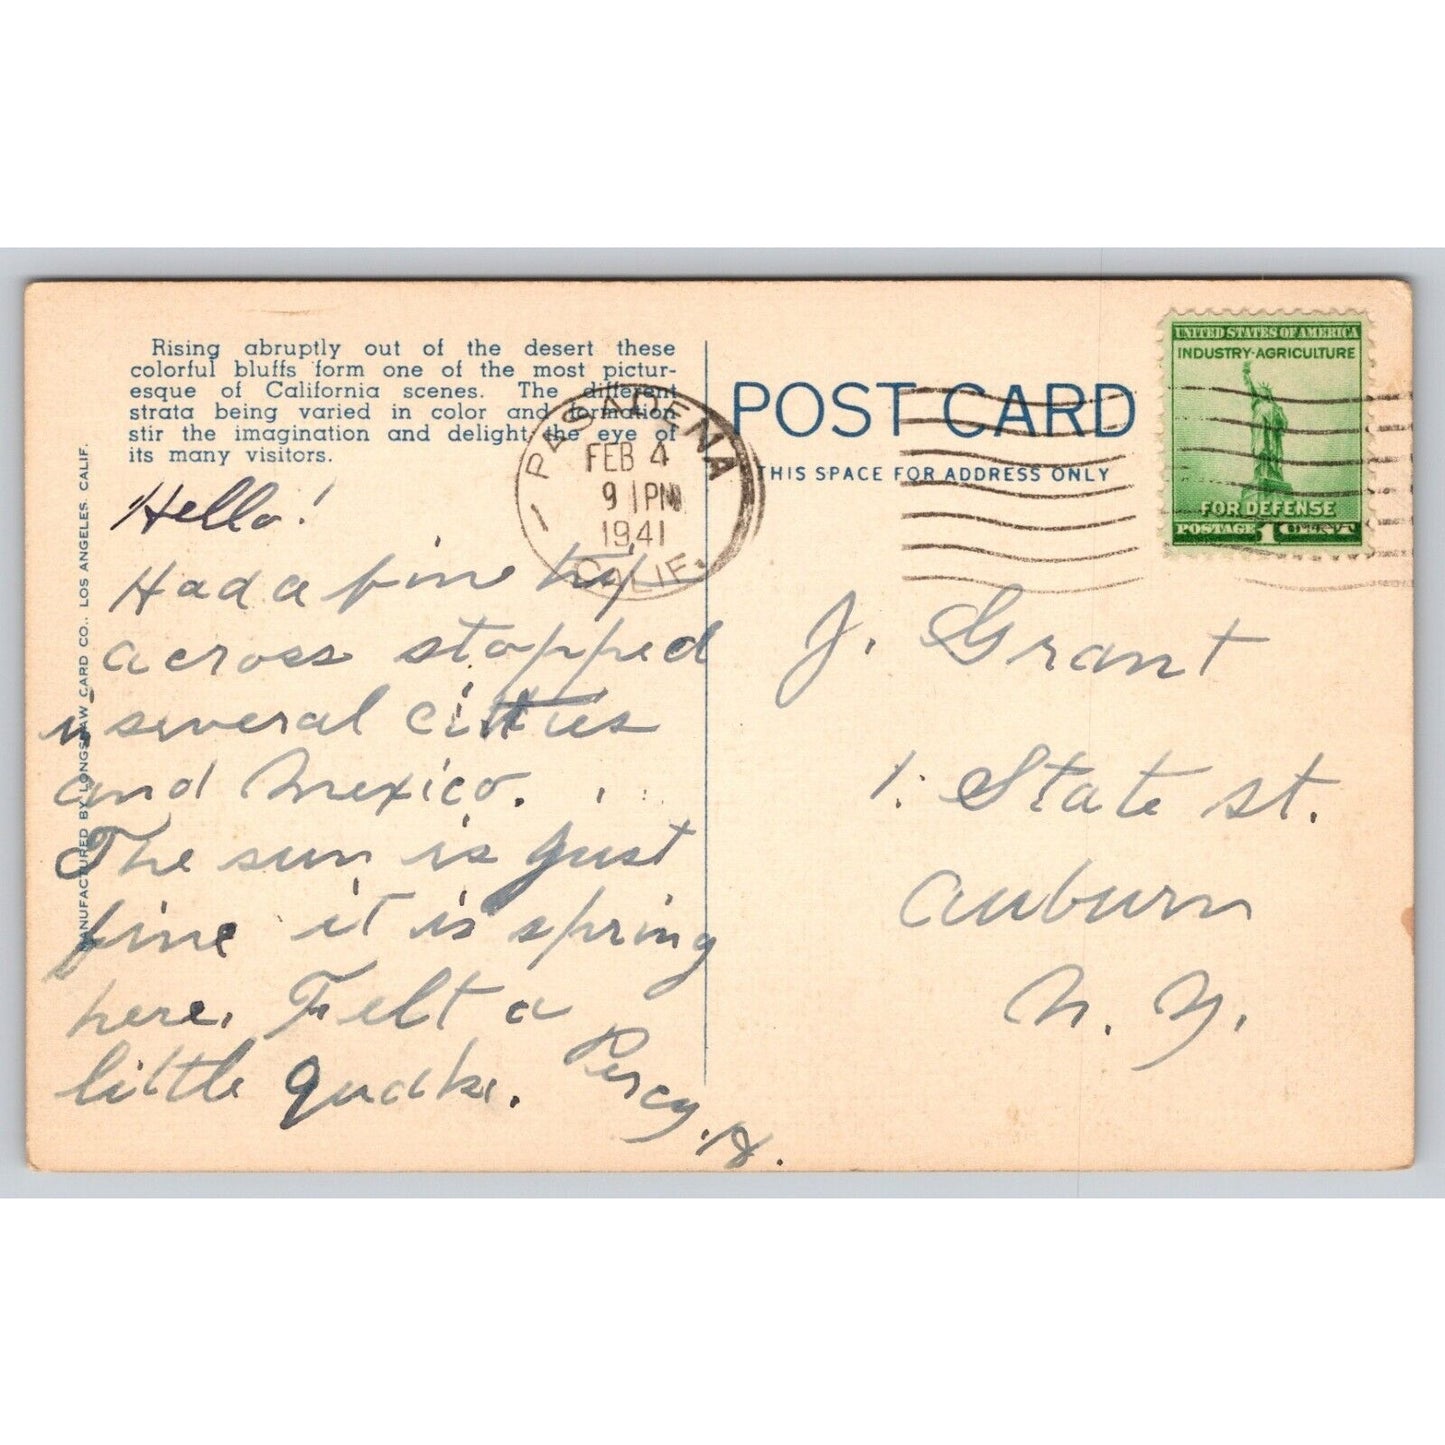 Rising abruptly out of the desert these
colorful bluffs form one of the most pictur-
esque of California scenes. The different
strata being varied in color and formation
stir the imagination and delight the eye of
its many visitors.
MANUFACTURED BY LONGSHAW CARD CO., LOS ANGELES, CALIF.
Hello!
Had a fine trip
across stopped
in several citties
and Mexico.
The sun is just
fine it is spring
here. Felt a
little quake.
Percy. H.
PASADENA
FEB 4
9 PM
1941
CALIF.
POST CARD
THIS SPACE FOR ADDRESS ONLY
UNITED STATES OF AMERICA
INDUSTRY·AGRICULTURE
FOR DEFENSE
POSTAGE 1 CENT
J. Grant
1. State st.
Auburn
N. Y.